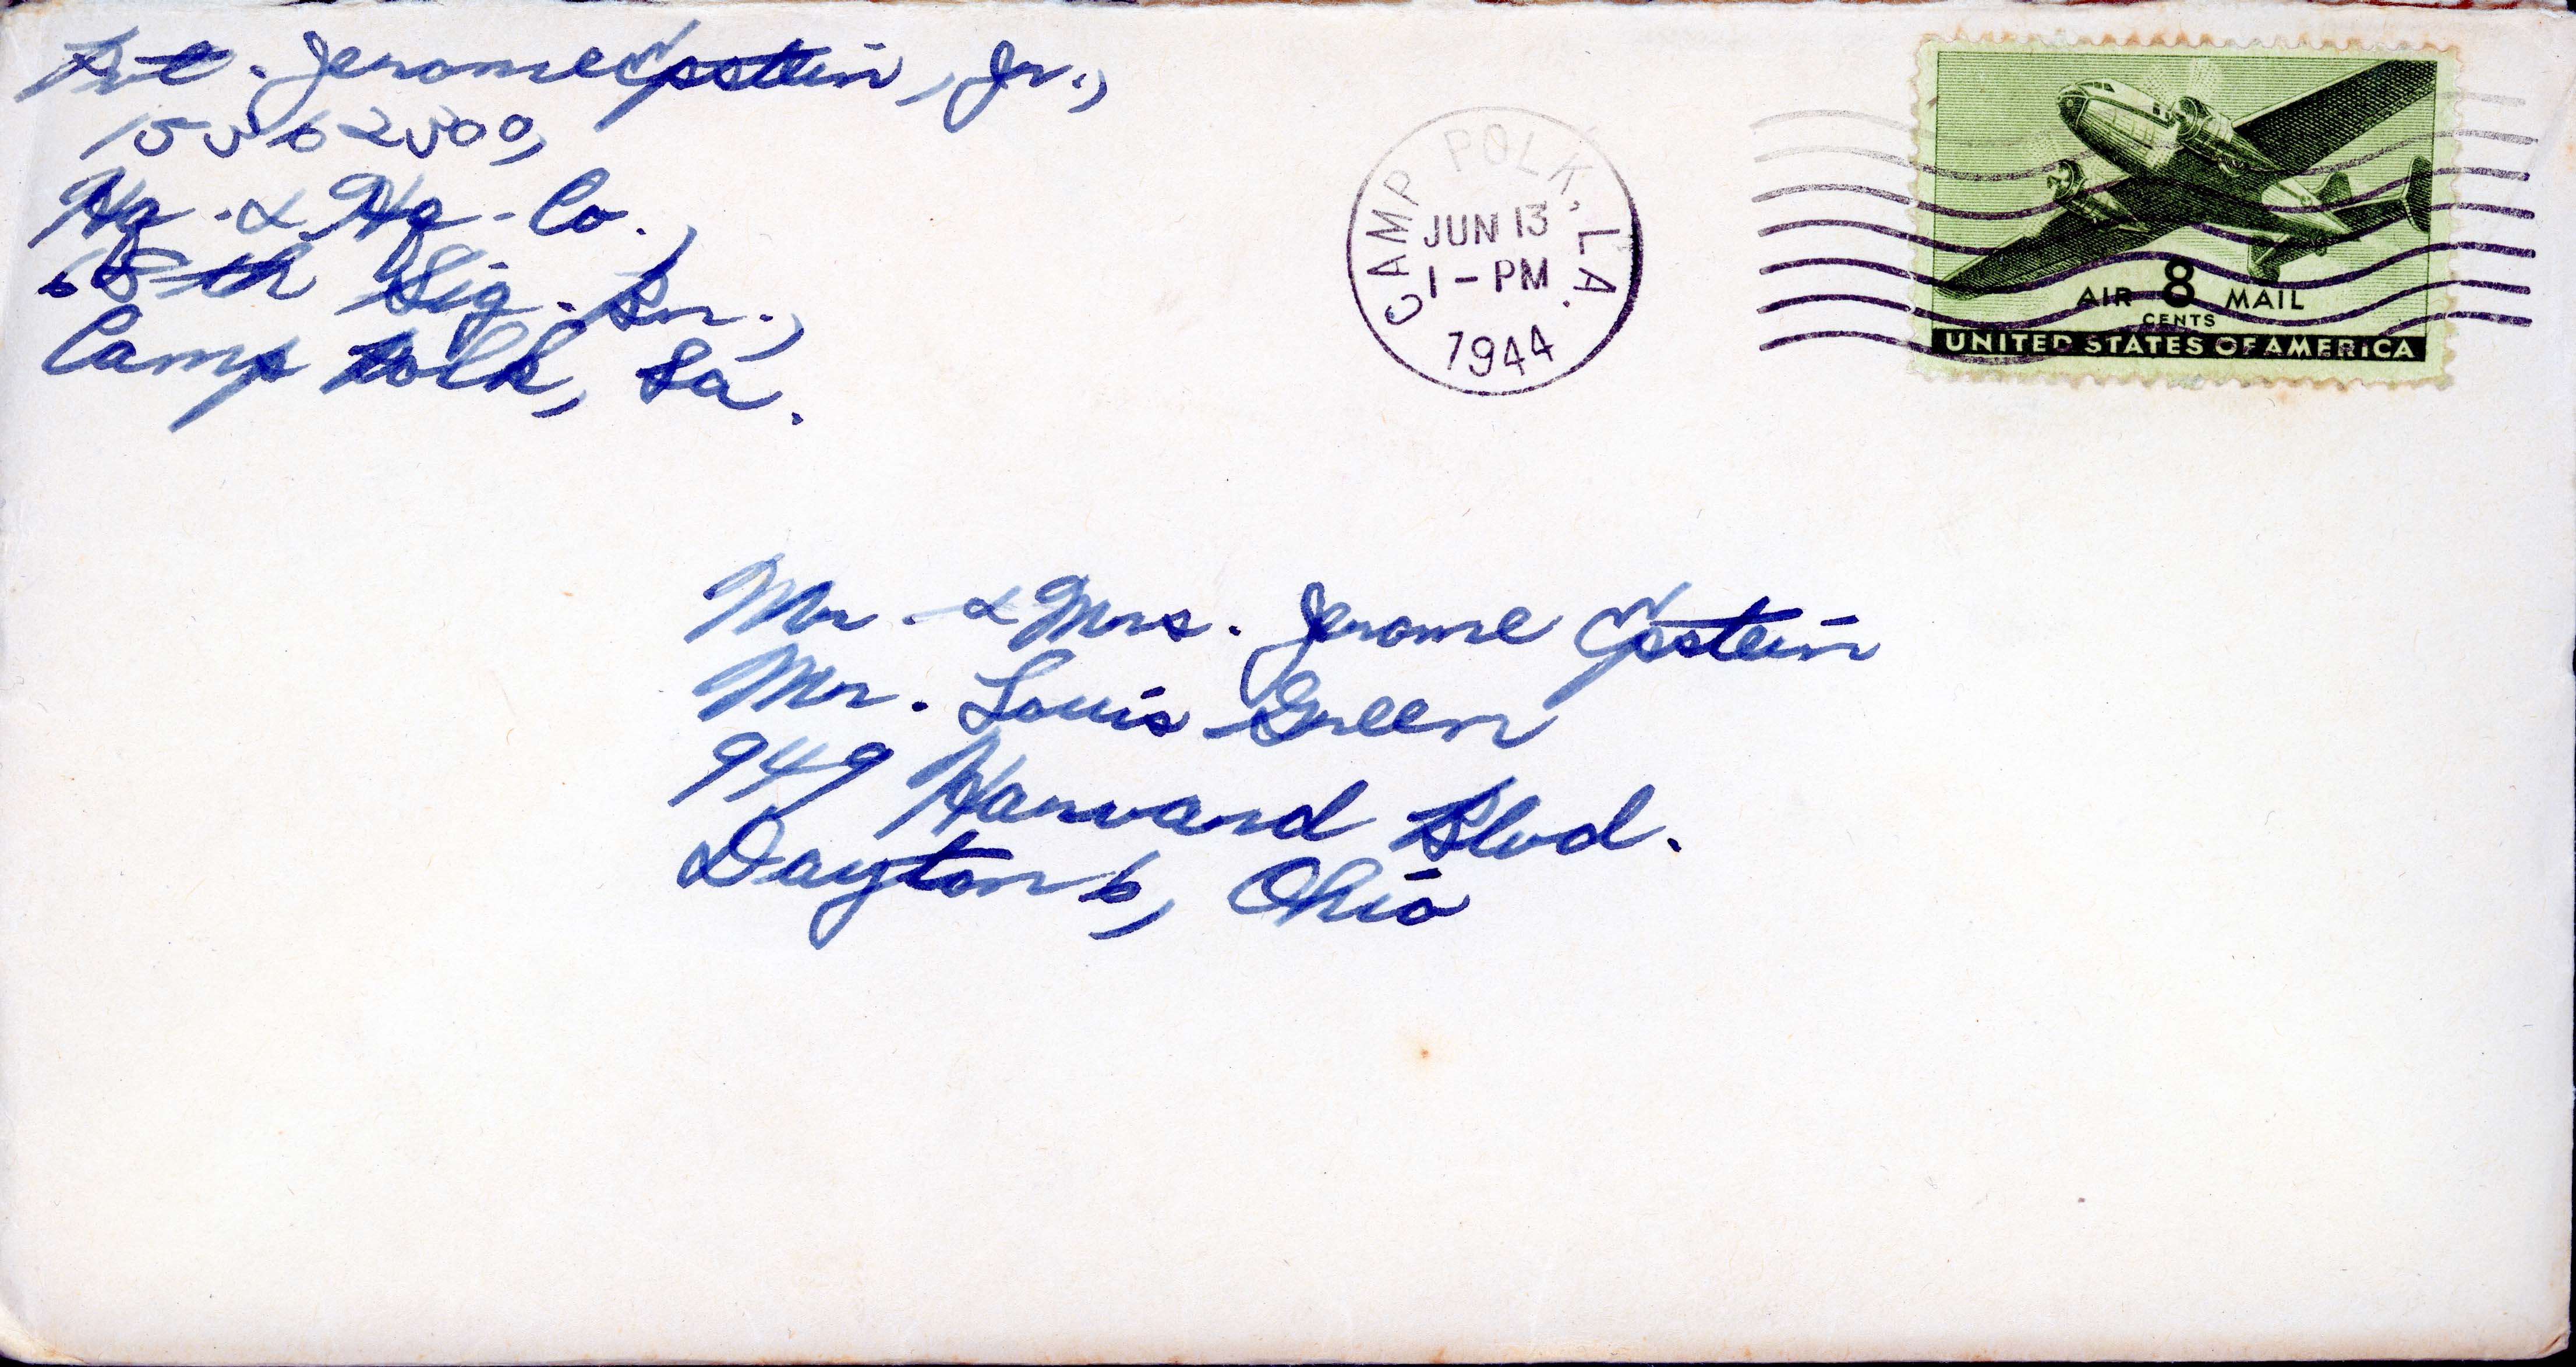 Pvt. Jerome Epstein, Jr.,
15362500,
Hq. & Hq. Co.,
68th Sig. Bn.,
Camp Polk, La.
CAMP POLK, LA.
JUN 13
1-PM
1944
AIR 8 MAIL
CENTS
UNITED STATES OF AMERICA
Mr. & Mrs. Jerome Epstein
Mr. Louis Green
949 Harvard Blvd.
Dayton 6, Ohio